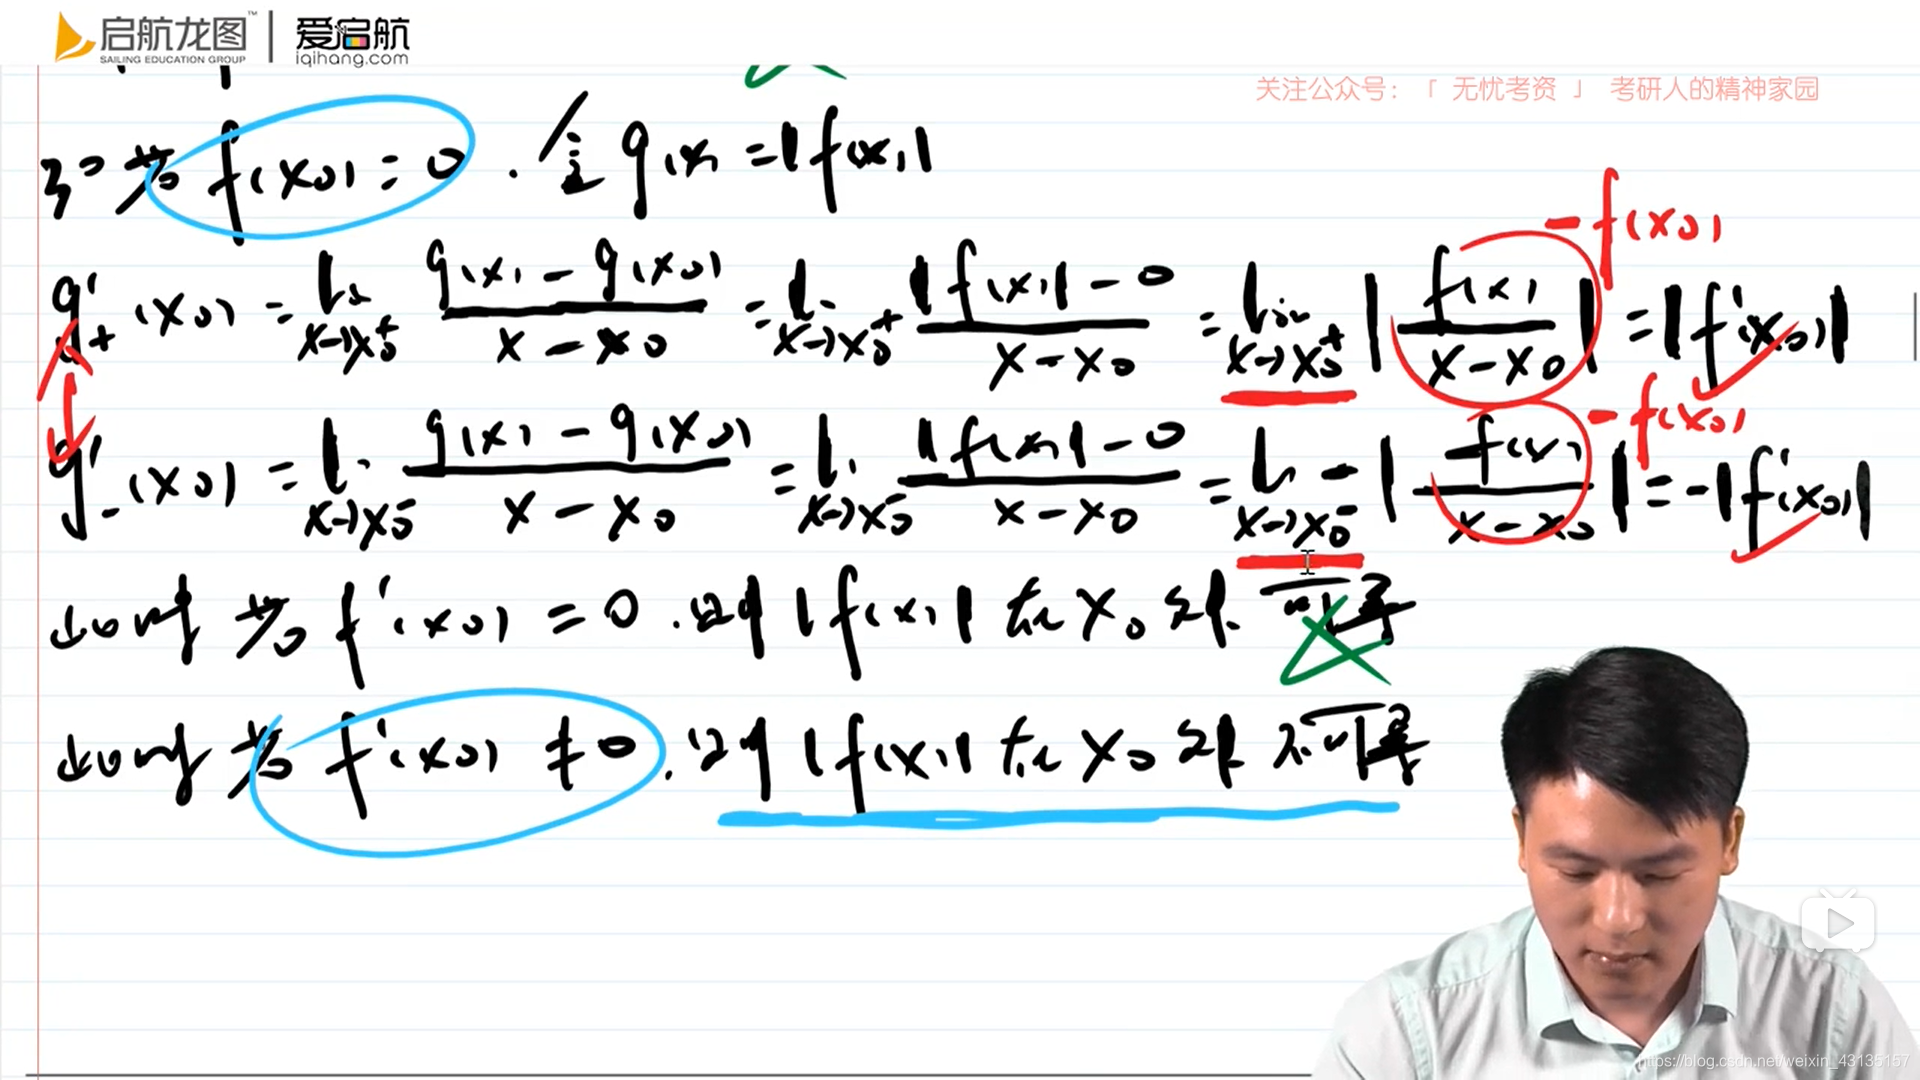 启航龙图™ | 爱启航
SAILING EDUCATION GROUP iqihang.com
关注公众号：「 无忧考资 」 考研人的精神家园
3° 若 f(x₀) = 0 . 令 g(x) = |f(x)|
g'₊(x₀) = lim x→x₀⁺ (g(x) − g(x₀))/(x − x₀) = lim x→x₀⁺ (|f(x)| − 0)/(x − x₀) = lim x→x₀⁺ |f(x)/(x−x₀)| = |f'(x₀)|
− f(x₀)
g'₋(x₀) = lim x→x₀⁻ (g(x) − g(x₀))/(x − x₀) = lim x→x₀⁻ (|f(x)| − 0)/(x − x₀) = lim x→x₀⁻ − |f(x)/(x−x₀)| = −|f'(x₀)|
− f(x₀)
此时 若 f'(x₀) = 0 . 则 |f(x)| 在 x₀ 处 可导
此时 若 f'(x₀) ≠ 0 . 则 |f(x)| 在 x₀ 处 不可导
https://blog.csdn.net/weixin_43135157